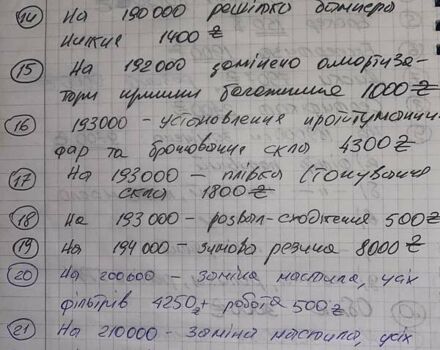 14 На 190000 решітка бампера
нижня 1400₴
15 На 192000 замінено амортиза-
тори кришки багажника 1000₴
16 193000 - установлення протитуманних
фар та бронювання скла 4300₴
17 На 193000 - плівка (тонування
скла 1800₴
18 На 193000 - розвал-сходження 500₴
19 На 194000 - зимова резина 8000₴
20 На 200000 - заміна мастила, усіх
фільтрів 4250₴ + робота 500₴
21 На 210000 - заміна мастила, усіх